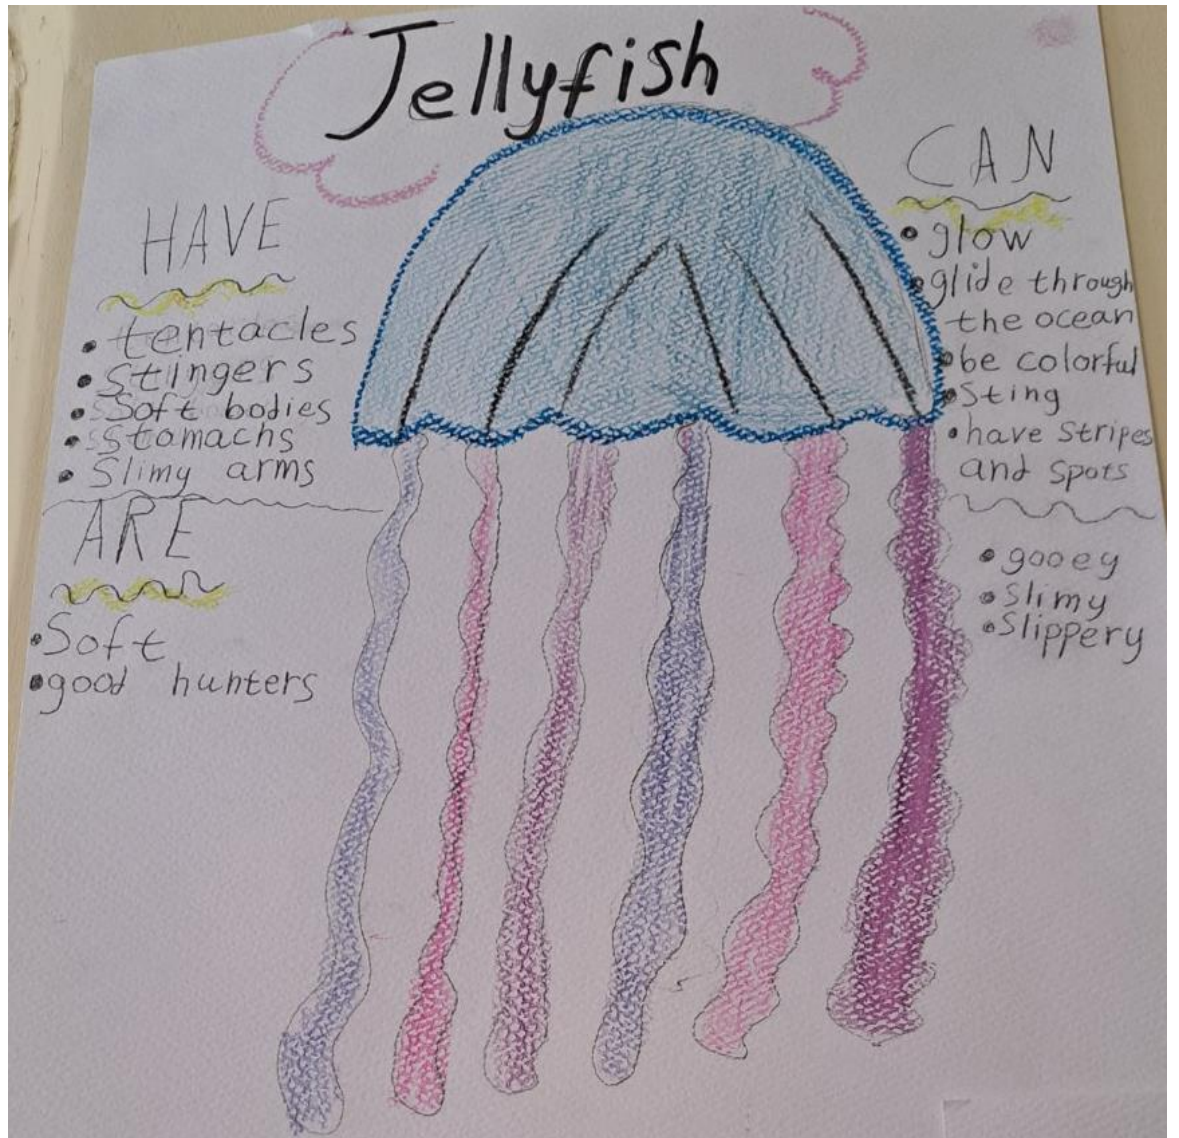 Jellyfish
HAVE
• tentacles
• Stingers
• Soft bodies
• Stomachs
• Slimy arms
ARE
• Soft
• good hunters
CAN
• glow
• glide through
the ocean
• be colorful
• Sting
• have Stripes
and spots
• gooey
• Slimy
• Slippery